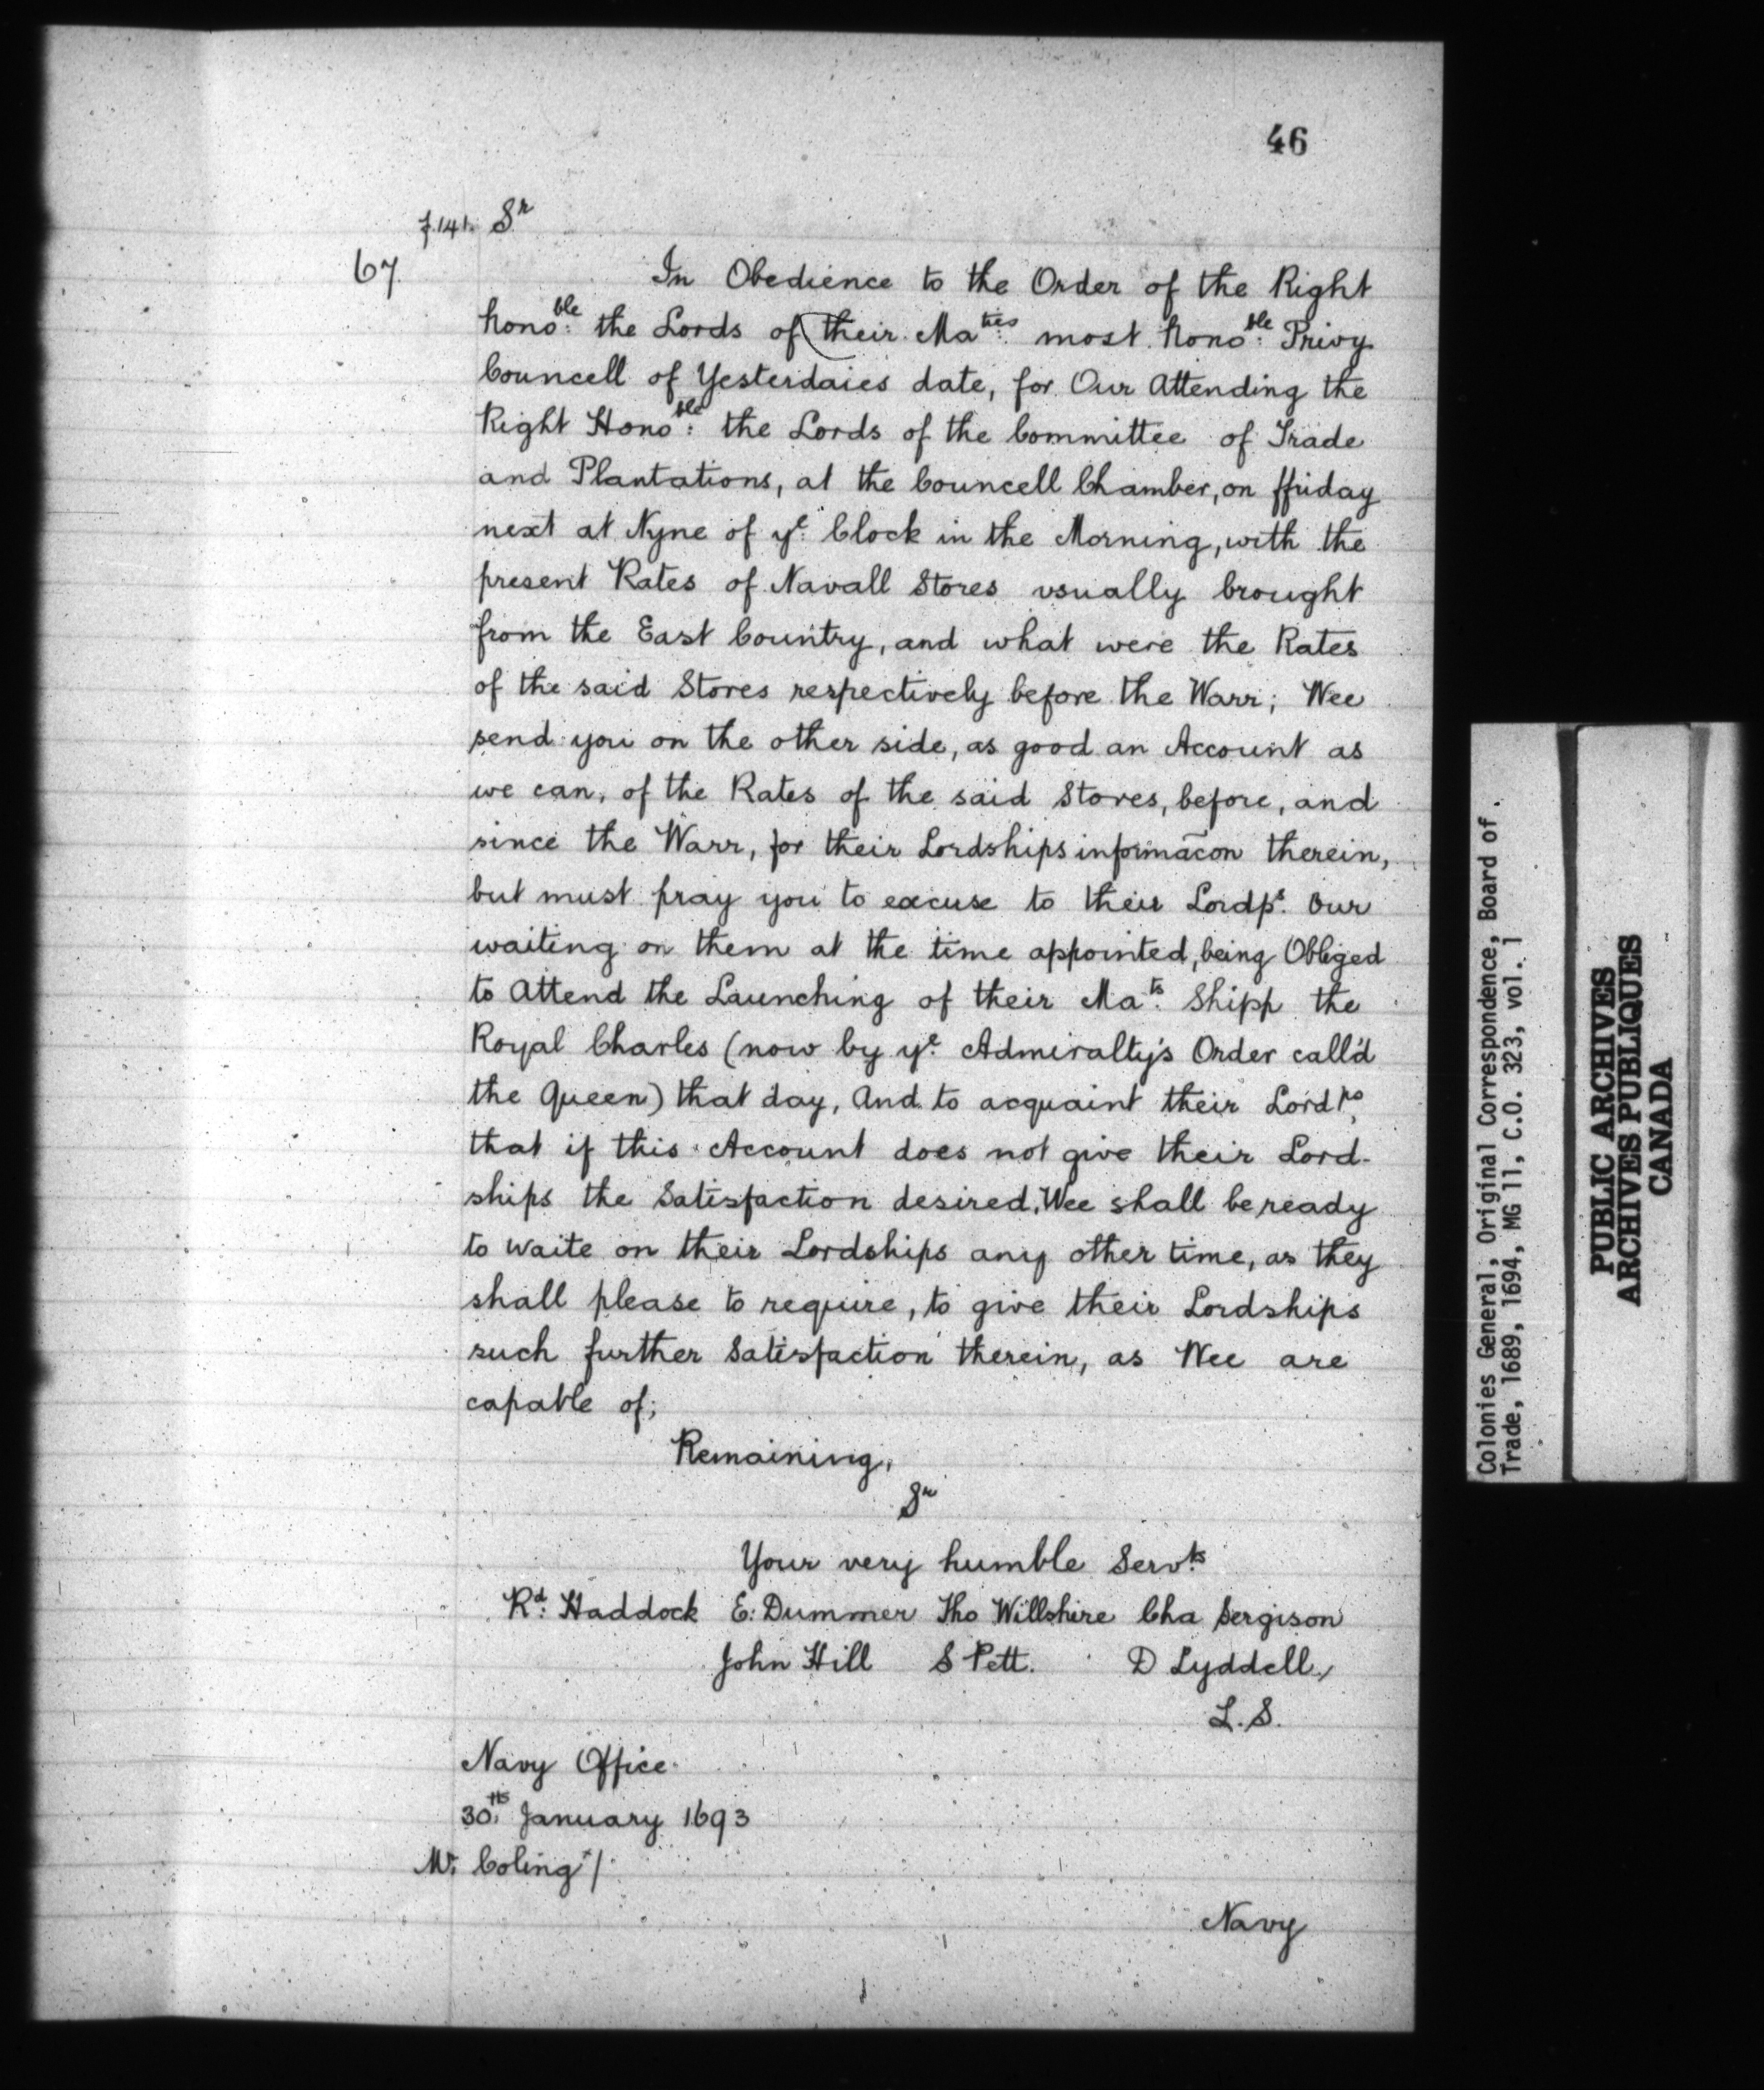 46
f.141. Sr
67.
In Obedience to the Order of the Right
hono:ble the Lords of their Maties most hono:ble Privy
Councell of Yesterdaies date, for Our Attending the
Right Hono:ble the Lords of the Committee of Trade
and Plantations, at the Councell Chamber, on ffriday
next at Nyne of ye Clock in the Morning, with the
present Rates of Navall Stores vsually brought
from the East Country, and what were the Rates
of the said Stores respectively before the Warr; Wee
send you on the other side, as good an Account as
we can, of the Rates of the said Stores, before, and
since the Warr, for their Lordships informac̃on therein,
but must pray you to excuse to their Lordps. Our
waiting on them at the time appointed, being Obliged
to Attend the Launching of their Mats. Shipp the
Royal Charles (now by ye Admiralty's Order call'd
the Queen) that day, And to acquaint their Lordps,
that if this Account does not give their Lord-
ships the Satisfaction desired, Wee shall be ready
to waite on their Lordships any other time, as they
shall please to require, to give their Lordships
such further Satisfaction therein, as Wee are
capable of;
Remaining,
Sr
Your very humble Servts
Rd: Haddock E: Dummer Tho Willshire Cha Sergison
John Hill S Pett. D Lyddell,
L.S.
Navy Office
30th January 1693
Mr. Coling+/
Navy
Colonies General, Original Correspondence, Board of.
Trade, 1689, 1694, MG 11, C.O. 323, vol. 1
PUBLIC ARCHIVES
ARCHIVES PUBLIQUES
CANADA